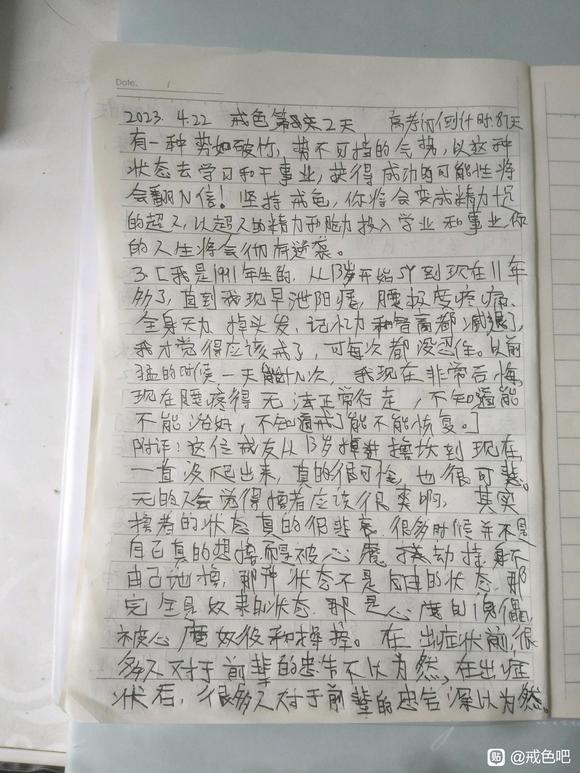 Date. 1
2023. 4.22 戒色第2天 高考倒计时:87天
有一种势如破竹,势不可挡的气势,以这种
状态去学习和干事业,获得成功的可能性将
会翻N倍!坚持戒色,你将会变成精力十足
的超人,以超人的精力和脑力投入学业和事业,你
的人生将会彻底逆袭。
3.[我是1991年生的,从13岁开始SY到现在11年
多了,直到我现早泄阳痿,腰极度疼痛、
全身无力,掉头发,记忆力和智商都减退了,
我才觉得应该戒了,可每次都没忍住。以前
猛的时候一天能N次,我现在非常后悔,
现在腰疼得无法正常行走,不知道能
不能治好,不知道戒了能不能恢复。]
附评:这位戒友从13岁掉进撸坑到现在
一直没爬出来,真的很可怜,也很可悲。
的人会觉得撸者应该很爽啊,其实
撸者的状态真的很悲哀,很多时候并不是
自己真的想撸,而是被心魔操动撸,身不
由己地撸,那种状态不是自由的状态,那
完全是奴隶的状态,那是心魔的傀儡,
被心魔奴役和操控。在出症状前,很
多人对于前辈的忠告不以为然,在出症
状后,很多人对于前辈的忠告深以为然。
贴 @戒色吧